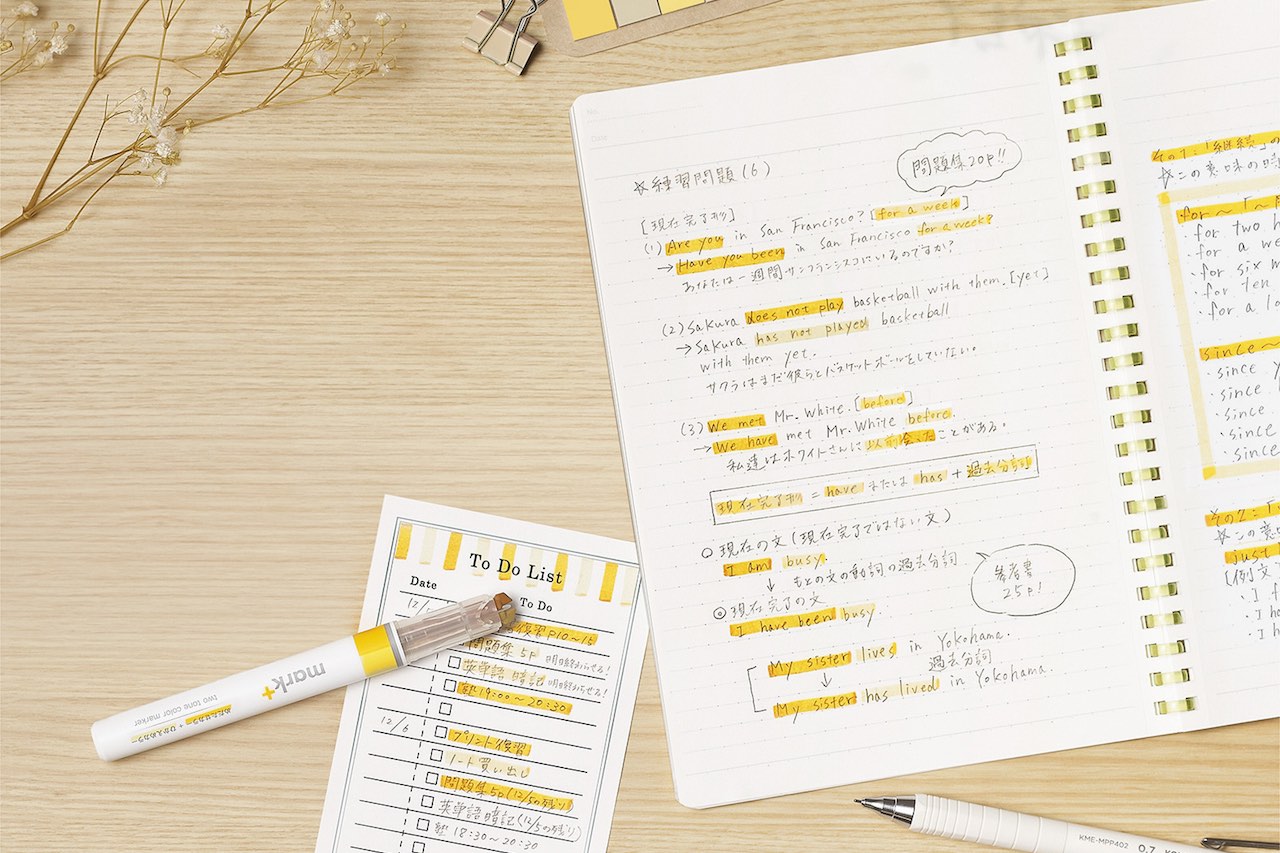 No.
Date
☆練習問題(6)
問題集20p!!
[現在完了形]
(1) Are you in San Francisco? [for a week]
→ Have you been in San Francisco for a week?
あなたは一週間サンフランシスコにいるのですか?
(2) Sakura does not play basketball with them. [yet]
→ Sakura has not played basketball
with them yet.
サクラはまだ彼らとバスケットボールをしていない。
(3) We met Mr. White. [before]
→ We have met Mr. White before.
私達はホワイトさんに以前会ったことがある。
現在完了形 = have または has + 過去分詞
○現在の文(現在完了ではない文)
I am busy.
↓ もとの文の動詞の過去分詞
◎現在完了の文
I have been busy
参考書
25p!
My sister lives in Yokohama.
↓ 過去分詞
My sister has lived in Yokohama.
その1:「継続」の
☆この意味の時
for ~「~
・for two h
・for a we
・for six m
・for ten
・for a lo
since ~
・since y
・since
・since
・since
・since
その2:「
☆この意
just
[例文
・I f
・I ha
・I h
To Do List
Date
To Do
12/
復習 P10~15
問題集 5p 明日終わらせる!
英単語 暗記 明日終わらせる!
塾 19:00~20:30
12/6
プリント復習
ノート買い出し
問題集 5p (12/5の残り)
英単語暗記(12/5の残り)
塾 18:30~20:30
mark+
two tone color marker
めだたせカラー + ひかえめカラー
KME-MPP402 0.7